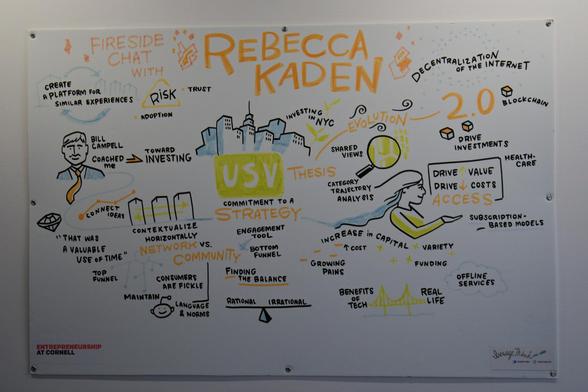 FIRESIDE
CHAT
WITH
REBECCA
KADEN
DECENTRALIZATION
OF THE INTERNET
CREATE
A PLATFORM FOR
SIMILAR EXPERIENCES
RISK
TRUST
ADOPTION
INVESTING
IN NYC
EVOLUTION
2.0
BLOCKCHAIN
DRIVE
INVESTMENTS
BILL
CAMPELL
COACHED
ME
TOWARD
INVESTING
USV
THESIS
SHARED
VIEWS
CATEGORY
TRAJECTORY
ANALYSIS
HEALTH-
CARE
DRIVE VALUE
DRIVE COSTS
ACCESS
COMMITMENT TO A
STRATEGY
CONNECT
IDEAS
CONTEXTUALIZE
HORIZONTALLY
SUBSCRIPTION-
BASED MODELS
"THAT WAS
A VALUABLE
USE OF TIME"
NETWORK VS.
COMMUNITY
ENGAGEMENT
TOOL
BOTTOM
FUNNEL
INCREASE IN CAPITAL
↑ COST
VARIETY
FUNDING
GROWING
PAINS
TOP
FUNNEL
CONSUMERS
ARE FICKLE
FINDING
THE BALANCE
OFFLINE
SERVICES
MAINTAIN
LANGUAGE
& NORMS
RATIONAL IRRATIONAL
BENEFITS
OF
TECH
REAL
LIFE
ENTREPRENEURSHIP
AT CORNELL